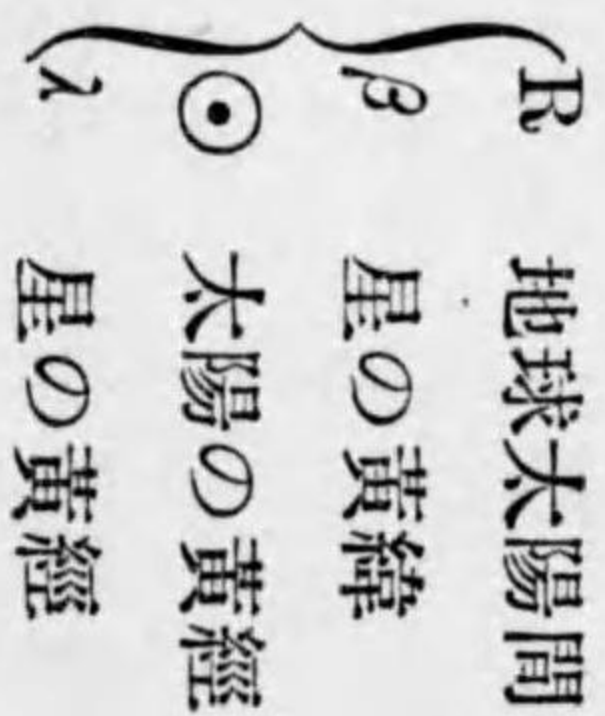 R 地球太陽間
β 星の黄緯
☉ 太陽の黄經
λ 星の黄經